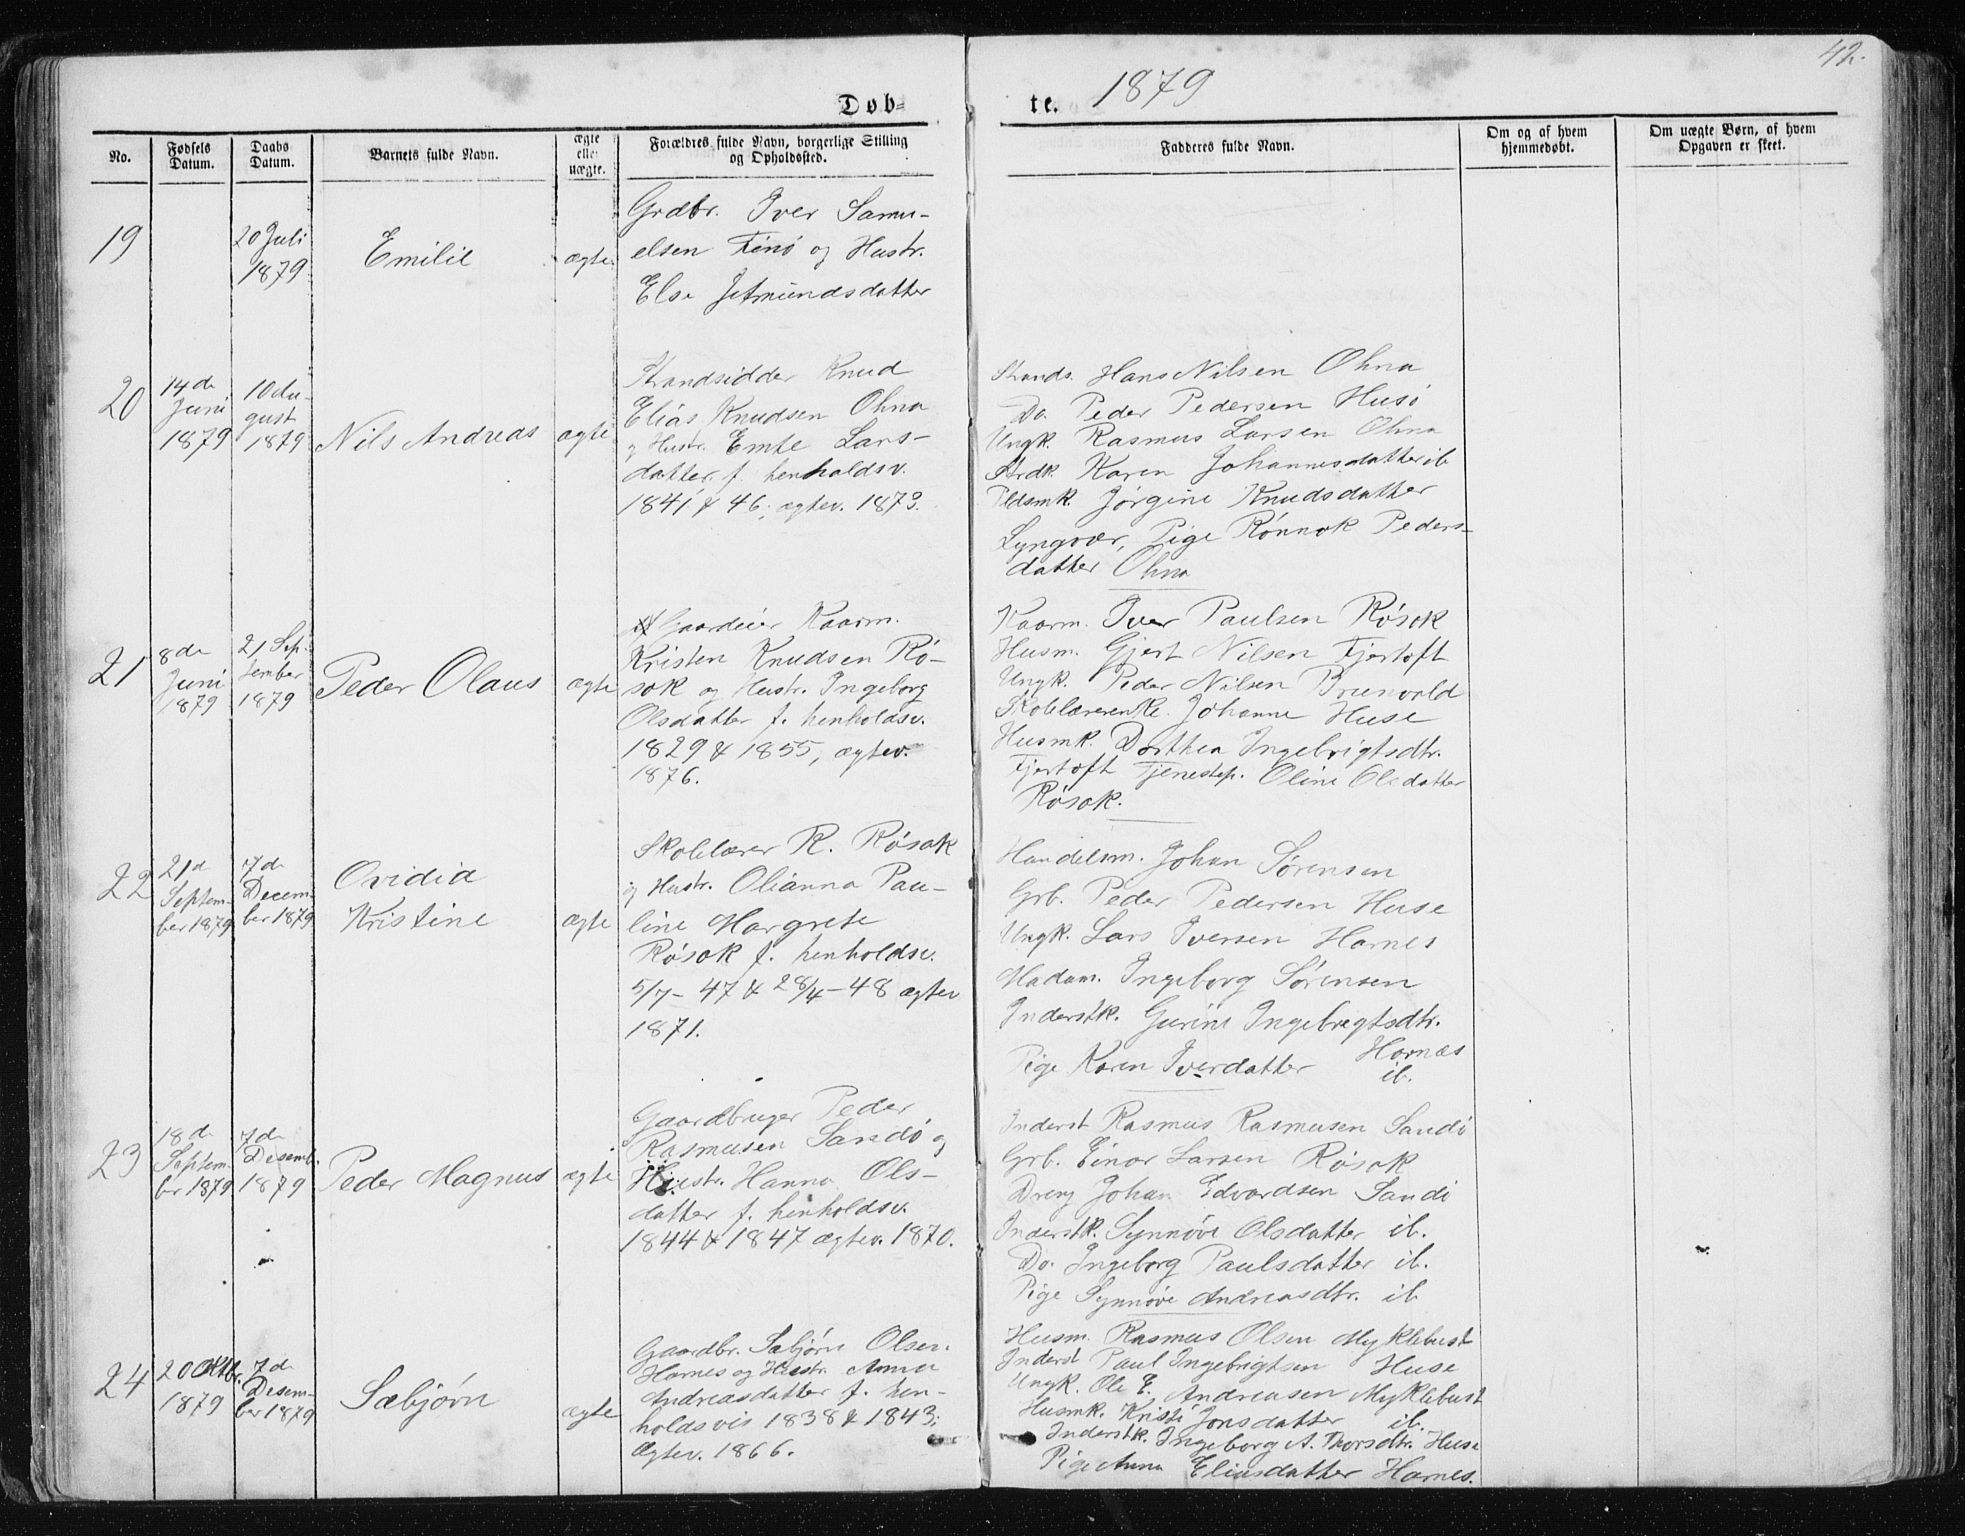 42.
Døb-
te. 1879
No.
Fødsels
Datum.
Daabs
Datum.
Barnets fulde Navn.
ægte
eller
uægte.
Forældres fulde Navn, borgerlige Stilling
og Opholdssted.
Fadderes fulde Navn.
Om og af hvem
hjemmedøbt.
Om uægte Børn, af hvem
Opgaven er skeet.
19
20 Juli
1879
Emilie
ægte
Grdbr. Iver Samu-
elsen Finö og Hustr.
Else Jetmundsdatter
20
14 de
Juni
1879
10 Au-
gust
1879
Nils Andreas
ægte
Strandsidder Knud
Elias Knudsen Ohna
og Hustr. Emte Lars-
datter f. henholdsv.
1841 & 46, ægtev. 1873.
Strands. Hans Nilsen Ohna
Do. Peder Pedersen Husö
Ungk. Rasmus Larsen Ohna
Strdk. Karen Johannesdatter ib
Pldsmk. Jörgine Knudsdatter
Lyngvær, Pige Rönnok Peders-
datter Ohna
21
8 de
Juni
1879
21 Sep-
tember
1879
Peder Olaus
ægte
Gaardeier Kaarm.
Kristen Knudsen Rö-
sok og Hustr. Ingeborg
Olsdatter f. henholdsv.
1829 & 1855, ægtev.
1876.
Kaarm. Iver Paulsen Rösok
Husm. Gjert Nilsen Fjertoft
Ungk. Peder Nilsen Brunvold
Skolelærerenke. Johanne Huse
Husmk. Dorthea Ingebrigtsdtr.
Fjertoft Tjenestep. Oline Olsdatter
Rösok.
22
21 d
Septem-
ber 1879
7 de
Decem-
ber 1879
Ovidia
Kristine
ægte
Skolelærer R. Rösok
og Hustr. Olianna Pau-
line Margrete
Rösok f. henholdsv.
5/7 - 47 & 28/4 - 48 ægtev
1871.
Handelsm. Johan Sörensen
Grb. Peder Pedersen Huse
Ungk. Lars Iversen Harnes
Madam. Ingeborg Sörensen
Inderstk. Gurine Ingebregtsdtr.
Harnæs
Pige Karen Iverdatter ib.
23
18 de
Septem-
ber 1879
7 de
Desemb.
1879
Peder Magnus
ægte
Gaardbruger Peder
Rasmusen Sandö og
Hustr. Hanna Ols-
datter f. henholdsv.
1844 & 1847 ægtev. 1870.
Inderst Rasmus Rasmusen Sandö
Grb. Einar Larsen Rösok
Dreng Johan Edvardsen Sandö
Inderstk. Synnöve Olsdatter ib.
Do. Ingeborg Paulsdatter ib.
Pige Synnöve Andreasdtr. ib
24
20 Oktbr.
1879
7 de
Desem-
ber 1879
Sæbjørn
ægte
Gaardbr. Sæbjörn Olsen
Harnes og Hustr. Anna
Andreasdatter f. hen-
holdsvis 1838 & 1843;
Ægtev. 1866.
Husm. Rasmus Olsen Myklebust
Inderst Paul Ingebrigtsen Huse
Ungk. Ole E. Andreasen Myklebust
Husmk. Kristi Jonsdatter ib.
Inderstk. Ingeborg A. Thorsdtr. Huse
Pige Anna Eliasdatter Harnes.